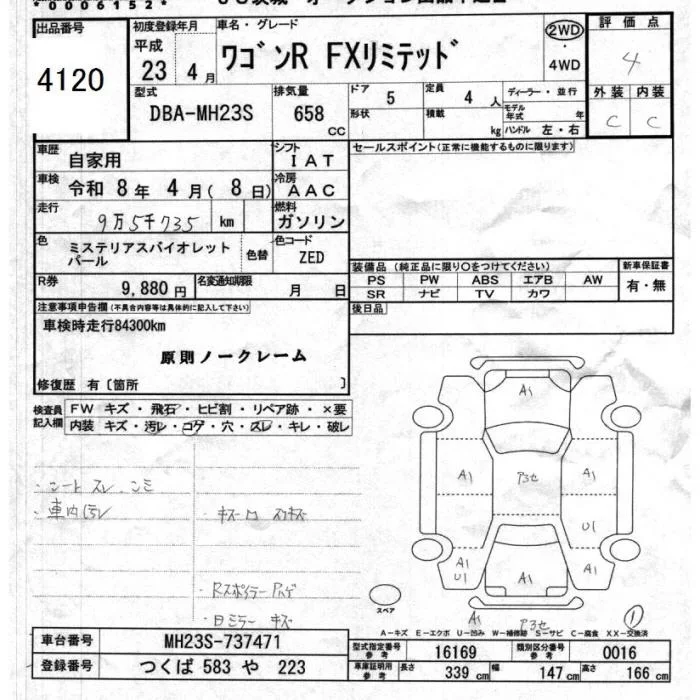 *0006152*
出品番号
4120
初度登録年月
平成
23 4月
車名・グレード
ワゴンR FXリミテッド
2WD
・
4WD
評価点
4
外装 内装
C C
型式
DBA-MH23S
排気量
658
CC
ドア
5
定員
4人
形状
積載
kg
ディーラー・並行
モデル年式 年
ハンドル 左・右
車歴
自家用
シフト
IAT
車検
令和 8年 4月( 8日)
冷房
AAC
走行
9万5千735 km
燃料
ガソリン
色
ミステリアスバイオレットパール
色替
色コード
ZED
R券
9,880円
名変通知期限
月 日
セールスポイント(正常に機能するものに限ります)
装備品(純正品に限り○をつけてください)
PS PW ABS エアB AW
SR ナビ TV カワ
新車保証書
有・無
後日品
注意事項申告欄(不具合内容等は具体的に記入して下さい)
車検時走行84300km
原則ノークレーム
修復歴 有〔箇所 〕
検査員記入欄
FW キズ・飛石・ヒビ割・リペア跡・×要
内装 キズ・汚レ・コゲ・穴・スレ・キレ・破レ
・シート スレ、シミ
・車内汚レ
・キズ・凹 スリキズ
・Rスポイラー ハゲ
・ミラー キズ
A1
A1
A1
A1
U1
A1
U1
A1
A1
A1
①
スペア
A－キズ E－エクボ U－凹み W－補修跡 S－サビ C－腐食 XX－交換済
車台番号
MH23S-737471
登録番号
つくば 583 や 223
型式指定番号参考
16169
類別区分番号参考
0016
車庫証明用参考
長さ 339cm 幅 147cm 高さ 166cm